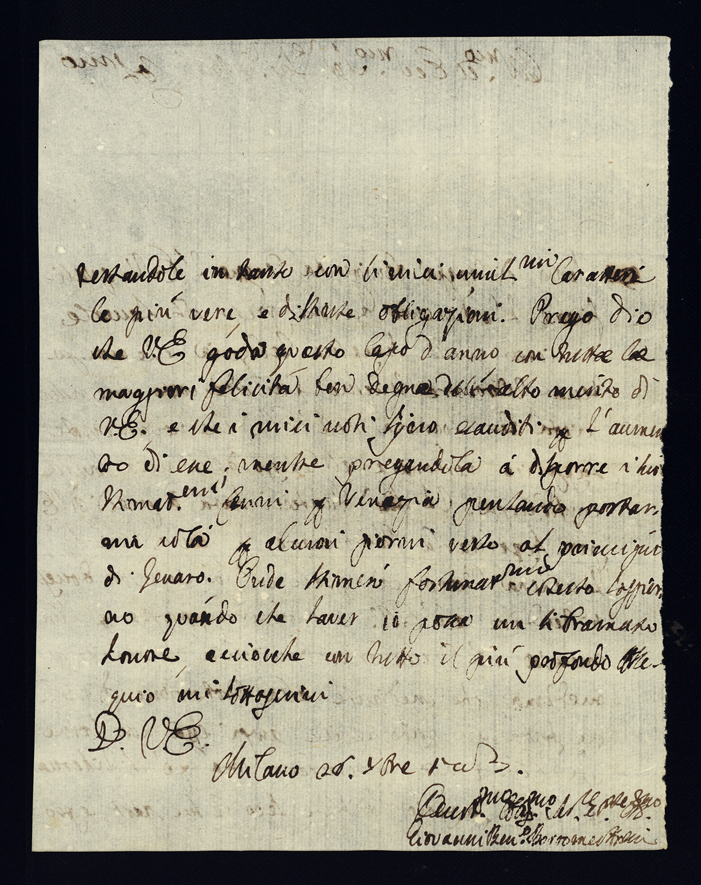 restandole in tanto con li miei umil.mi Caratteri
le più vere, e distinte obligazioni. Prego Dio
che V.E. goda questo Capo d'anno con tutte le
maggiori felicità ben degne dell'alto merito di
V.E. e che i miei voti sijno esauditi p l'aumen
to di esse, mentre pregandola á disporre i suoi
stimat.mi cenni p Venezia pensando portar-
mi colà p alcuni giorni verso al principio
di Genaro. Onde stimerò fortunat.mo questo soggior
no quando che haver io possa un si bramato
honore, acciocche con tutto il più profondo osse-
quio mi sottoscrivi
D. V.E.
Milano 26. Xbre
Giovanni Ben.o Borromeo Arese